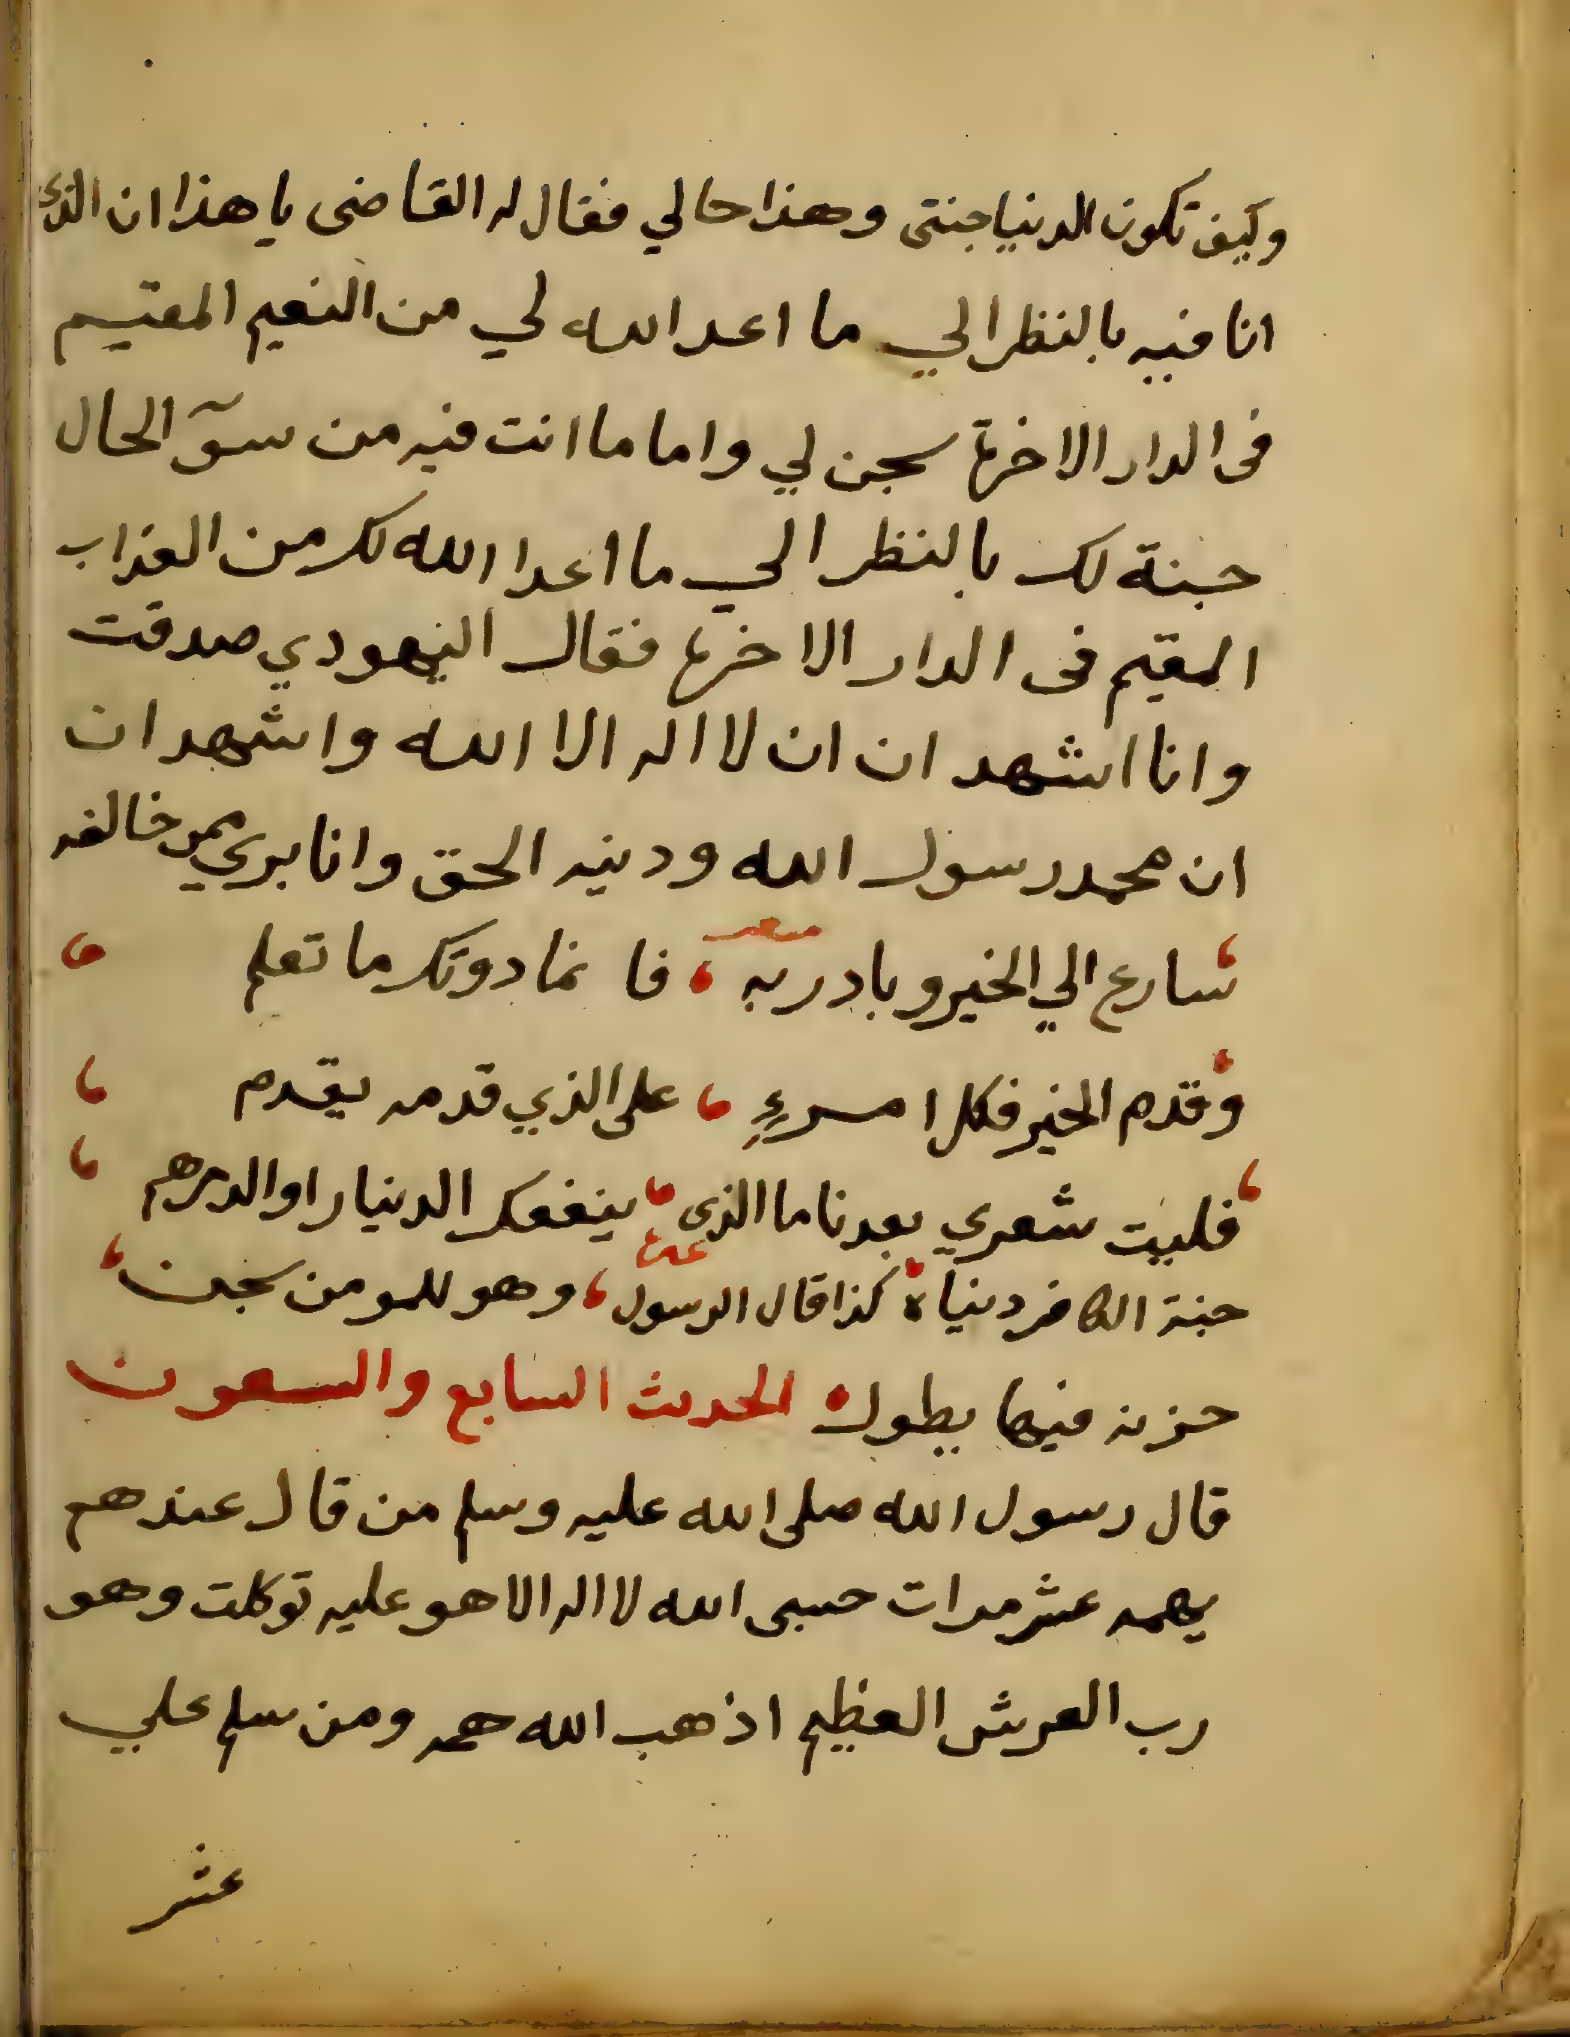 وكيف تكون الدنيا جنتي وهذا حالي فقال له القاضى يا هذا ان الذي
انا فيه بالنظر الي ما اعد الله لي من النعيم المقيم
فى الدار الاخرة سجن لي واما ما انت فيه من سوٓ الحال
جنة لك بالنظر الي ما اعدا الله لك من العذاب
المقيم فى الدار الاخرة فقال اليهودي صدقت
وانا اشهد ان ان لا اله الا الله واشهد ان
ان محمد رسول الله ودينه الحق وانا بري ممن خالفه
شعر
سارع الي الخير وبادر به ، فا نما دونك ما تعلم
وقدم الخير فكل امرءٍ ، على الذي قدمه يقدم
فليت شعري بعدنا ما الذي ، ينفعك الدينار او الدرهم
جنة الكافر دنياه كذا قال الرسول ، وهو للمومن سجن
حزنه فيها يطول الحديث السابع والسعون
قال رسول الله صلى الله عليه وسلم من قال عند هم
يهمه عشر مرات حسبى الله لا اله الا هو عليه توكلت وهو
رب العرش العظيم اذهب الله همه ومن سلم علي
عشر